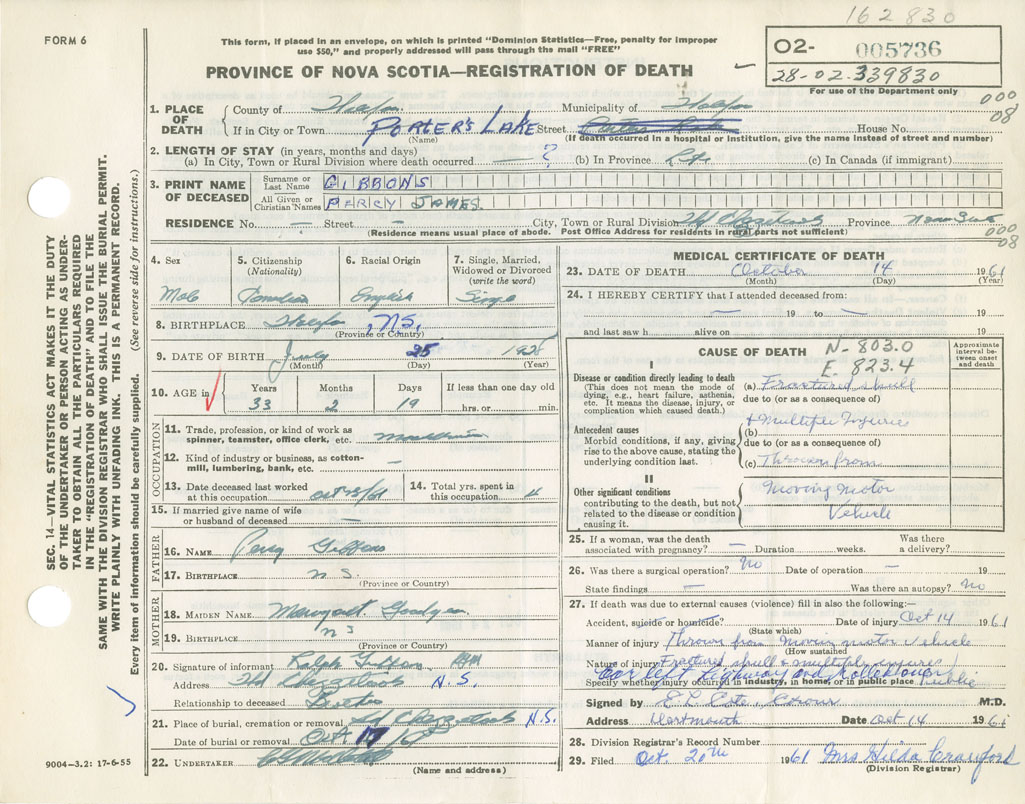 162830
FORM 6
This form, if placed in an envelope, on which is printed "Dominion Statistics—Free, penalty for improper
use $50," and properly addressed will pass through the mail "FREE"
PROVINCE OF NOVA SCOTIA—REGISTRATION OF DEATH
02- 005736
28-02-339830
For use of the Department only
000
08
1. PLACE OF DEATH
County of Halifax Municipality of Halifax
If in City or Town PORTER'S LAKE Street House No.
(Name) (If death occurred in a hospital or institution, give the name instead of street and number)
2. LENGTH OF STAY (in years, months and days)
(a) In City, Town or Rural Division where death occurred — ? (b) In Province Life (c) In Canada (if immigrant)
3. PRINT NAME OF DECEASED
Surname or Last Name GIBBONS
All Given or Christian Names PERCY JAMES
RESIDENCE No. — Street — City, Town or Rural Division Hd Chezzetcook Province Nova Scotia
(Residence means usual place of abode. Post Office Address for residents in rural parts not sufficient)
000
08
4. Sex
Male
5. Citizenship
(Nationality)
Canadian
6. Racial Origin
English
7. Single, Married,
Widowed or Divorced
(write the word)
Single
8. BIRTHPLACE Halifax, N.S.
(Province or Country)
9. DATE OF BIRTH July 25 1928
(Month) (Day) (Year)
10. AGE in
Years Months Days If less than one day old
33 2 19 hrs. or min.
OCCUPATION
11. Trade, profession, or kind of work as
spinner, teamster, office clerk, etc.
12. Kind of industry or business, as cotton-
mill, lumbering, bank, etc. —
13. Date deceased last worked
at this occupation Oct 13/61
14. Total yrs. spent in
this occupation 4
15. If married give name of wife
or husband of deceased —
FATHER
16. NAME Percy Gibbons
17. BIRTHPLACE N.S.
(Province or Country)
MOTHER
18. MAIDEN NAME Margaret
19. BIRTHPLACE N S
(Province or Country)
20. Signature of informant Ralph Gibbons
Address Hd Chezzetcook N.S.
Relationship to deceased Brother
21. Place of burial, cremation or removal Hd Chezzetcook N.S.
Date of burial or removal Oct 17
22. UNDERTAKER
(Name and address)
SEC. 14—VITAL STATISTICS ACT MAKES IT THE DUTY
OF THE UNDERTAKER OR PERSON ACTING AS UNDER-
TAKER TO OBTAIN ALL THE PARTICULARS REQUIRED
IN THE "REGISTRATION OF DEATH" AND TO FILE THE
SAME WITH THE DIVISION REGISTRAR WHO SHALL ISSUE THE BURIAL PERMIT.
WRITE PLAINLY WITH UNFADING INK. THIS IS A PERMANENT RECORD.
Every item of information should be carefully supplied. (See reverse side for instructions.)
9004-3.2: 17-6-55
MEDICAL CERTIFICATE OF DEATH
23. DATE OF DEATH October 14 1961
(Month) (Day) (Year)
24. I HEREBY CERTIFY that I attended deceased from:
— 19 to — 19
and last saw h alive on 19
CAUSE OF DEATH N-803.0
E. 823.4
Approximate
interval be-
tween onset
and death
I
Disease or condition directly leading to death
(This does not mean the mode of
dying, e.g., heart failure, asthenia,
etc. It means the disease, injury, or
complication which caused death.)
(a) Fractured skull
due to (or as a consequence of)
Antecedent causes
Morbid conditions, if any, giving
rise to the above cause, stating the
underlying condition last.
+ Multiple Injuries
(b)
due to (or as a consequence of)
(c) Thrown from
II
Other significant conditions
contributing to the death, but not
related to the disease or condition
causing it.
Moving motor
Vehicle
25. If a woman, was the death
associated with pregnancy? — Duration weeks. Was there
a delivery?
26. Was there a surgical operation? No Date of operation — 19
State findings — Was there an autopsy? No
27. If death was due to external causes (violence) fill in also the following:—
Accident, suicide or homicide? Date of injury Oct 14 1961
(State which)
Manner of injury Thrown from Moving motor vehicle
(How sustained
Nature of injury Fractured skull & multiple injuries
Car left Highway and rolled over
Specify whether injury occurred in industry, in home, or in public place Public
Signed by M.D.
Address Dartmouth Date Oct 14 1961
28. Division Registrar's Record Number
29. Filed Oct. 20th 1961 Mrs Hilda Crawford
(Division Registrar)